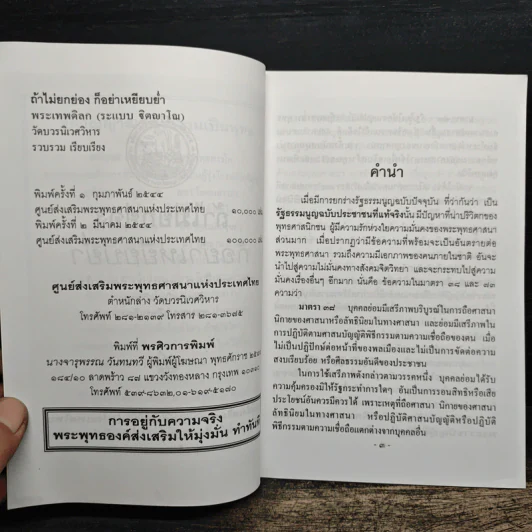 ถ้าไม่ยกย่อง ก็อย่าเหยียบย่ำ
พระเทพดิลก (ระแบบ ฐิตญาโณ)
วัดบวรนิเวศวิหาร
รวบรวม เรียบเรียง
พิมพ์ครั้งที่ ๑ กุมภาพันธ์ ๒๕๔๔
ศูนย์ส่งเสริมพระพุทธศาสนาแห่งประเทศไทย ๑๐,๐๐๐
พิมพ์ครั้งที่ ๒ มีนาคม ๒๕๔๔
ศูนย์ส่งเสริมพระพุทธศาสนาแห่งประเทศไทย ๑๐๐,๐๐๐
ศูนย์ส่งเสริมพระพุทธศาสนาแห่งประเทศไทย
ตำหนักล่าง วัดบวรนิเวศวิหาร
โทรศัพท์ ๒๘๑-๒๑๓๙ โทรสาร ๒๘๑-๓๖๔๕
พิมพ์ที่ พรศิวการพิมพ์
นางจารุพรรณ วันทนทวี ผู้พิมพ์ผู้โฆษณา พุทธศักราช
ลาดพร้าว ๘๗ แขวงวังทองหลาง กรุงเทพ
โทรศัพท์
การอยู่กับความจริง
พระพุทธองค์ส่งเสริมให้มุ่งมั่น ทำทันที
คำนำ
เมื่อมีการยกร่างรัฐธรรมนูญฉบับปัจจุบัน ที่ว่ากันว่า เป็น
รัฐธรรมนูญฉบับประชาชนที่แท้จริงนั้น มีปัญหาที่น่าปริวิตกของ
พุทธศาสนิกชน ผู้มีความรักห่วงใยความมั่นคงของพระพุทธศาสนา
ส่วนมาก เมื่อปรากฏว่ามีข้อความที่พร้อมจะเป็นอันตรายต่อ
พระพุทธศาสนา รวมถึงความมีเอกภาพของคนภายในชาติ อันจะ
นำไปสู่ความไม่มั่นคงทางสังคมจิตวิทยา และจะกระทบไปสู่ความ
มั่นคงเรื่องอื่นๆ อีกมาก นั่นคือ ข้อความในมาตรา ๓๘ และ ๗๓
ความว่า
มาตรา ๓๘ บุคคลย่อมมีเสรีภาพบริบูรณ์ในการถือศาสนา
นิกายของศาสนาหรือลัทธินิยมในทางศาสนา และย่อมมีเสรีภาพใน
การปฏิบัติตามศาสนบัญญัติหรือปฏิบัติพิธีกรรมตามความเชื่อถือของตน เมื่อ
ไม่เป็นปฏิปักษ์ต่อหน้าที่ของพลเมืองและไม่เป็นการขัดต่อความ
สงบเรียบร้อย หรือศีลธรรมอันดีของประชาชน
ในการใช้เสรีภาพดังกล่าวตามวรรคหนึ่ง บุคคลย่อมได้รับ
ความคุ้มครองมิให้รัฐกระทำการใดๆ อันเป็นการรอนสิทธิหรือเสีย
ประโยชน์อันควรมีควรได้ เพราะเหตุที่ถือศาสนา นิกายของศาสนา
ลัทธินิยมในทางศาสนา หรือปฏิบัติตามศาสนบัญญัติหรือปฏิบัติ
พิธีกรรมตามความเชื่อถือแตกต่างจากบุคคลอื่น